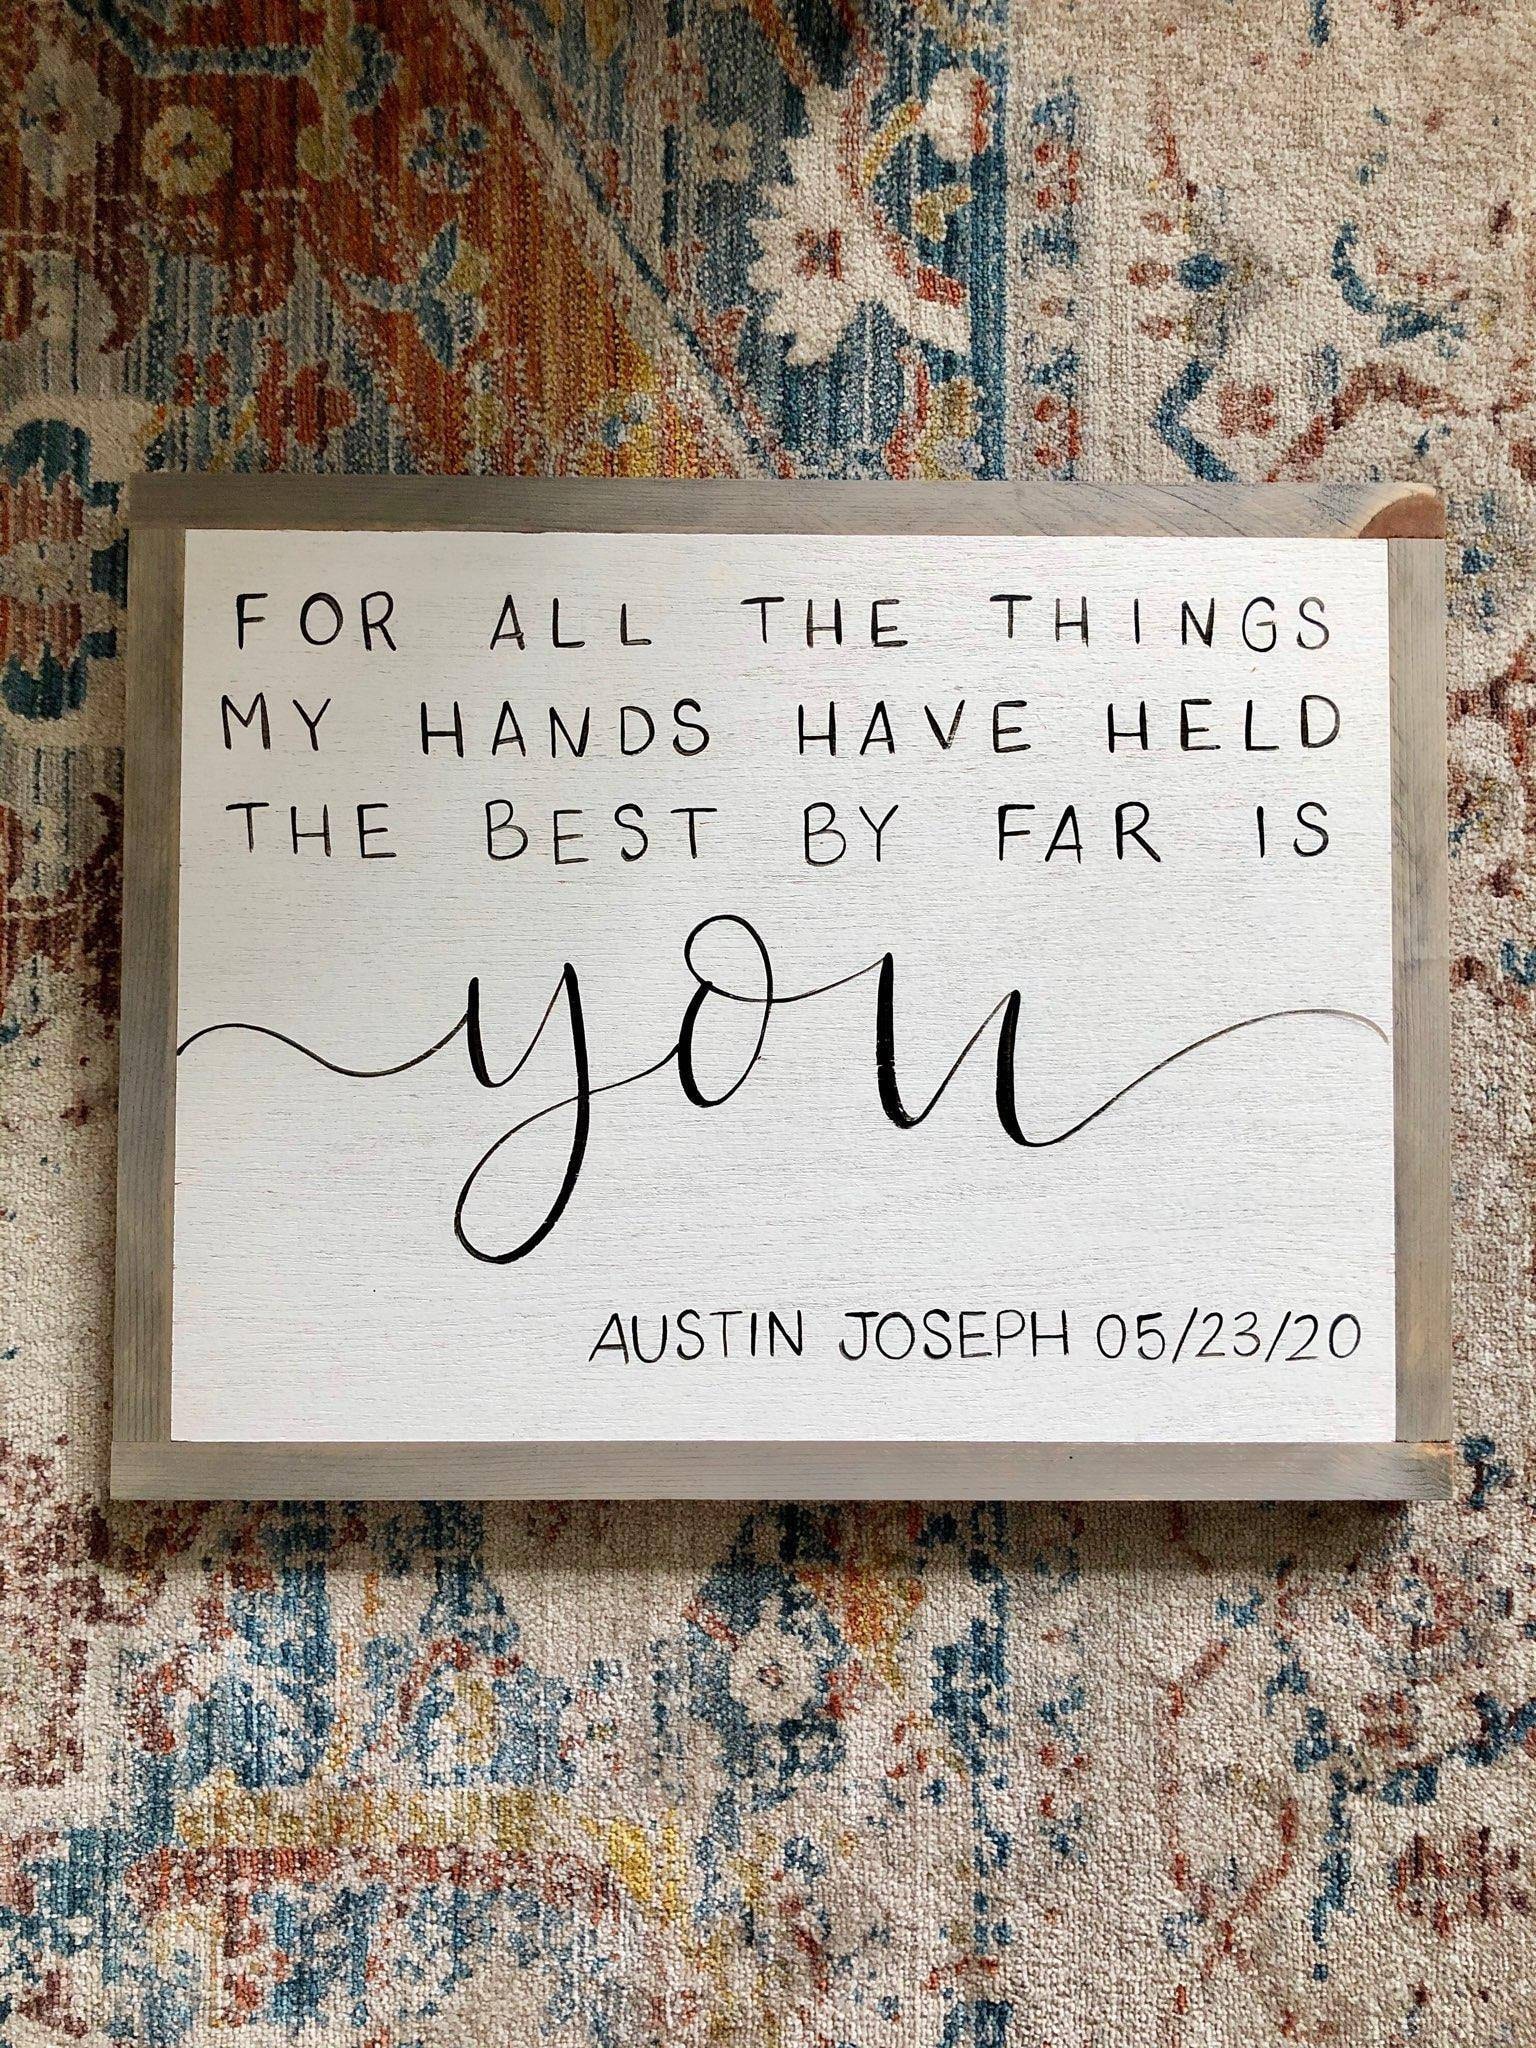 FOR ALL THE THINGS
MY HANDS HAVE HELD
THE BEST BY FAR IS
you
AUSTIN JOSEPH 05/23/20